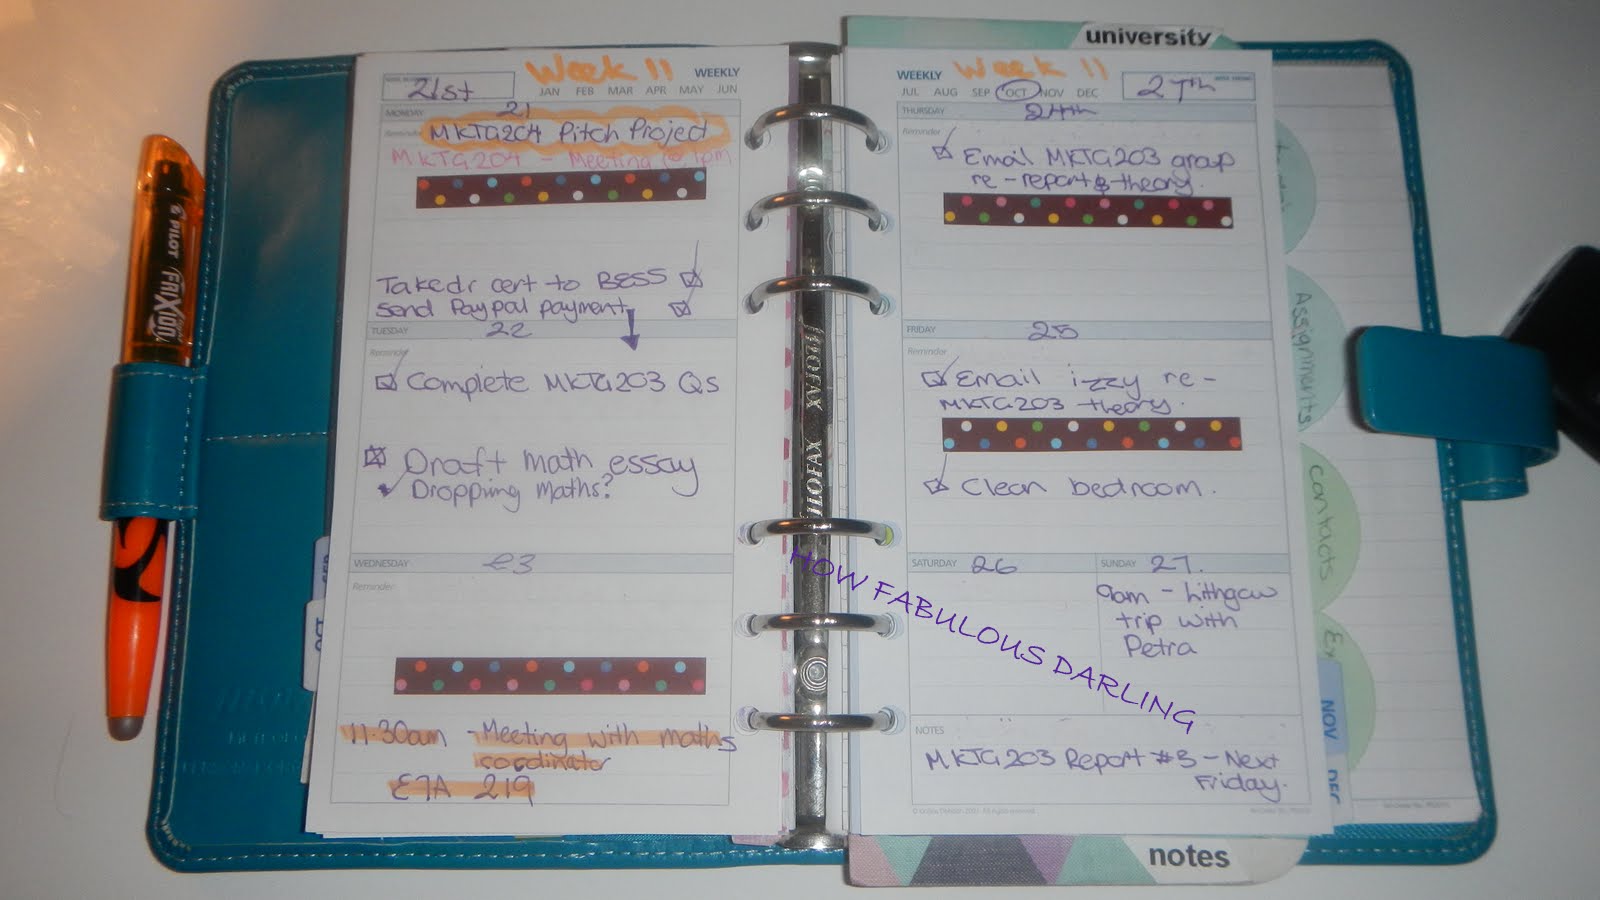 university
Week 11
WEEKLY
21st
JAN FEB MAR APR MAY JUN
MONDAY 21
Reminder
MKTG204 Pitch Project
MKTG204 - Meeting @ 1pm
Take dr cert to BESS
send PayPal payment
TUESDAY 22
Reminder
Complete MKTG203 Qs
Draft math essay
Dropping maths?
WEDNESDAY 23
Reminder
11.30am - Meeting with maths
cordinator
E7A 219
WEEKLY
Week 11
27th
JUL AUG SEP OCT NOV DEC
THURSDAY 24th
Reminder
Email MKTG203 group
re - report & theory.
FRIDAY 25
Reminder
Email izzy re -
MKTG203 theory.
Clean bedroom.
SATURDAY 26
SUNDAY 27.
9am - Lithgow
trip with
Petra
NOTES
MKTG203 Report #3 - Next
Friday.
HOW FABULOUS DARLING
notes
PILOT
FRIXION
FILOFAX
FILOFAX
Assignments
Contacts
Ex
NOV
DEC
SEP
OCT